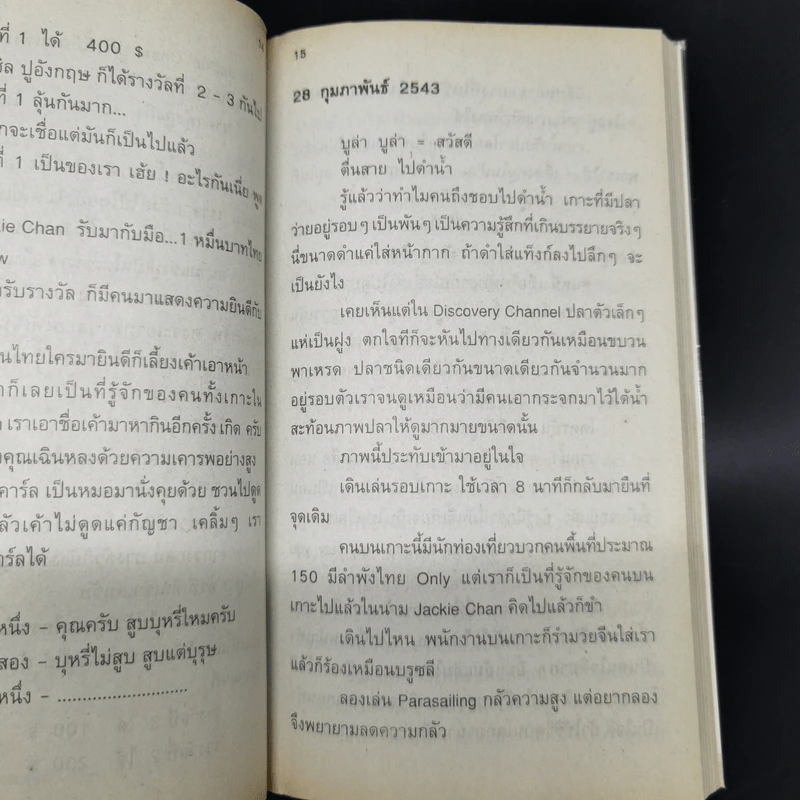 ที่ 1 ได้ 400 $
ซิล ปูอังกฤษ ก็ได้รางวัลที่ 2 - 3 กันไป
ที่ 1 ลุ้นกันมาก...
กจะเชื่อแต่มันก็เป็นไปแล้ว
ที่ 1 เป็นของเรา เฮ้ย ! อะไรกันเนี่ย พูด
kie Chan รับมากับมือ...1 หมื่นบาทไทย
w
งรับรางวัล ก็มีคนมาแสดงความยินดีกับ
นไทยใครมายินดีก็เลี้ยงเค้าเอาหน้า
าก็เลยเป็นที่รู้จักของคนทั้งเกาะใน
เราเอาชื่อเค้ามาหากินอีกครั้ง เกิด ครับ
งคุณเฉินหลงด้วยความเคารพอย่างสูง
คาร์ล เป็นหมอมานั่งคุยด้วย ชวนไปดูด
ลัวเค้าไม่ดูดแค่กัญชา เคลิ้มๆ เรา
าร์ลได้
หนึ่ง – คุณครับ สูบบุหรี่ไหมครับ
สอง – บุหรี่ไม่สูบ สูบแต่บุรุษ
หนึ่ง – ..........................
15
28 กุมภาพันธ์ 2543
บูล่า บูล่า = สวัสดี
ตื่นสาย ไปดำน้ำ
รู้แล้วว่าทำไมคนถึงชอบไปดำน้ำ เกาะที่มีปลา
ว่ายอยู่รอบๆ เป็นพันๆ เป็นความรู้สึกที่เกินบรรยายจริงๆ
นี่ขนาดดำแค่ใส่หน้ากาก ถ้าดำใส่แท็งก์ลงไปลึกๆ จะ
เป็นยังไง
เคยเห็นแต่ใน Discovery Channel ปลาตัวเล็กๆ
แห่เป็นฝูง ตกใจทีก็จะหันไปทางเดียวกันเหมือนขบวน
พาเหรด ปลาชนิดเดียวกันขนาดเดียวกันจำนวนมาก
อยู่รอบตัวเราจนดูเหมือนว่ามีคนเอากระจกมาไว้ใต้น้ำ
สะท้อนภาพปลาให้ดูมากมายขนาดนั้น
ภาพนี้ประทับเข้ามาอยู่ในใจ
เดินเล่นรอบเกาะ ใช้เวลา 8 นาทีก็กลับมายืนที่
จุดเดิม
คนบนเกาะนี้มีนักท่องเที่ยวบวกคนพื้นที่ประมาณ
150 มีลำพังไทย Only แต่เราก็เป็นที่รู้จักของคนบน
เกาะไปแล้วในนาม Jackie Chan คิดไปแล้วก็ขำ
เดินไปไหน พนักงานบนเกาะก็รำมวยจีนใส่เรา
แล้วก็ร้องเหมือนบรูซลี
ลองเล่น Parasailing กลัวความสูง แต่อยากลอง
จึงพยายามลดความกลัว